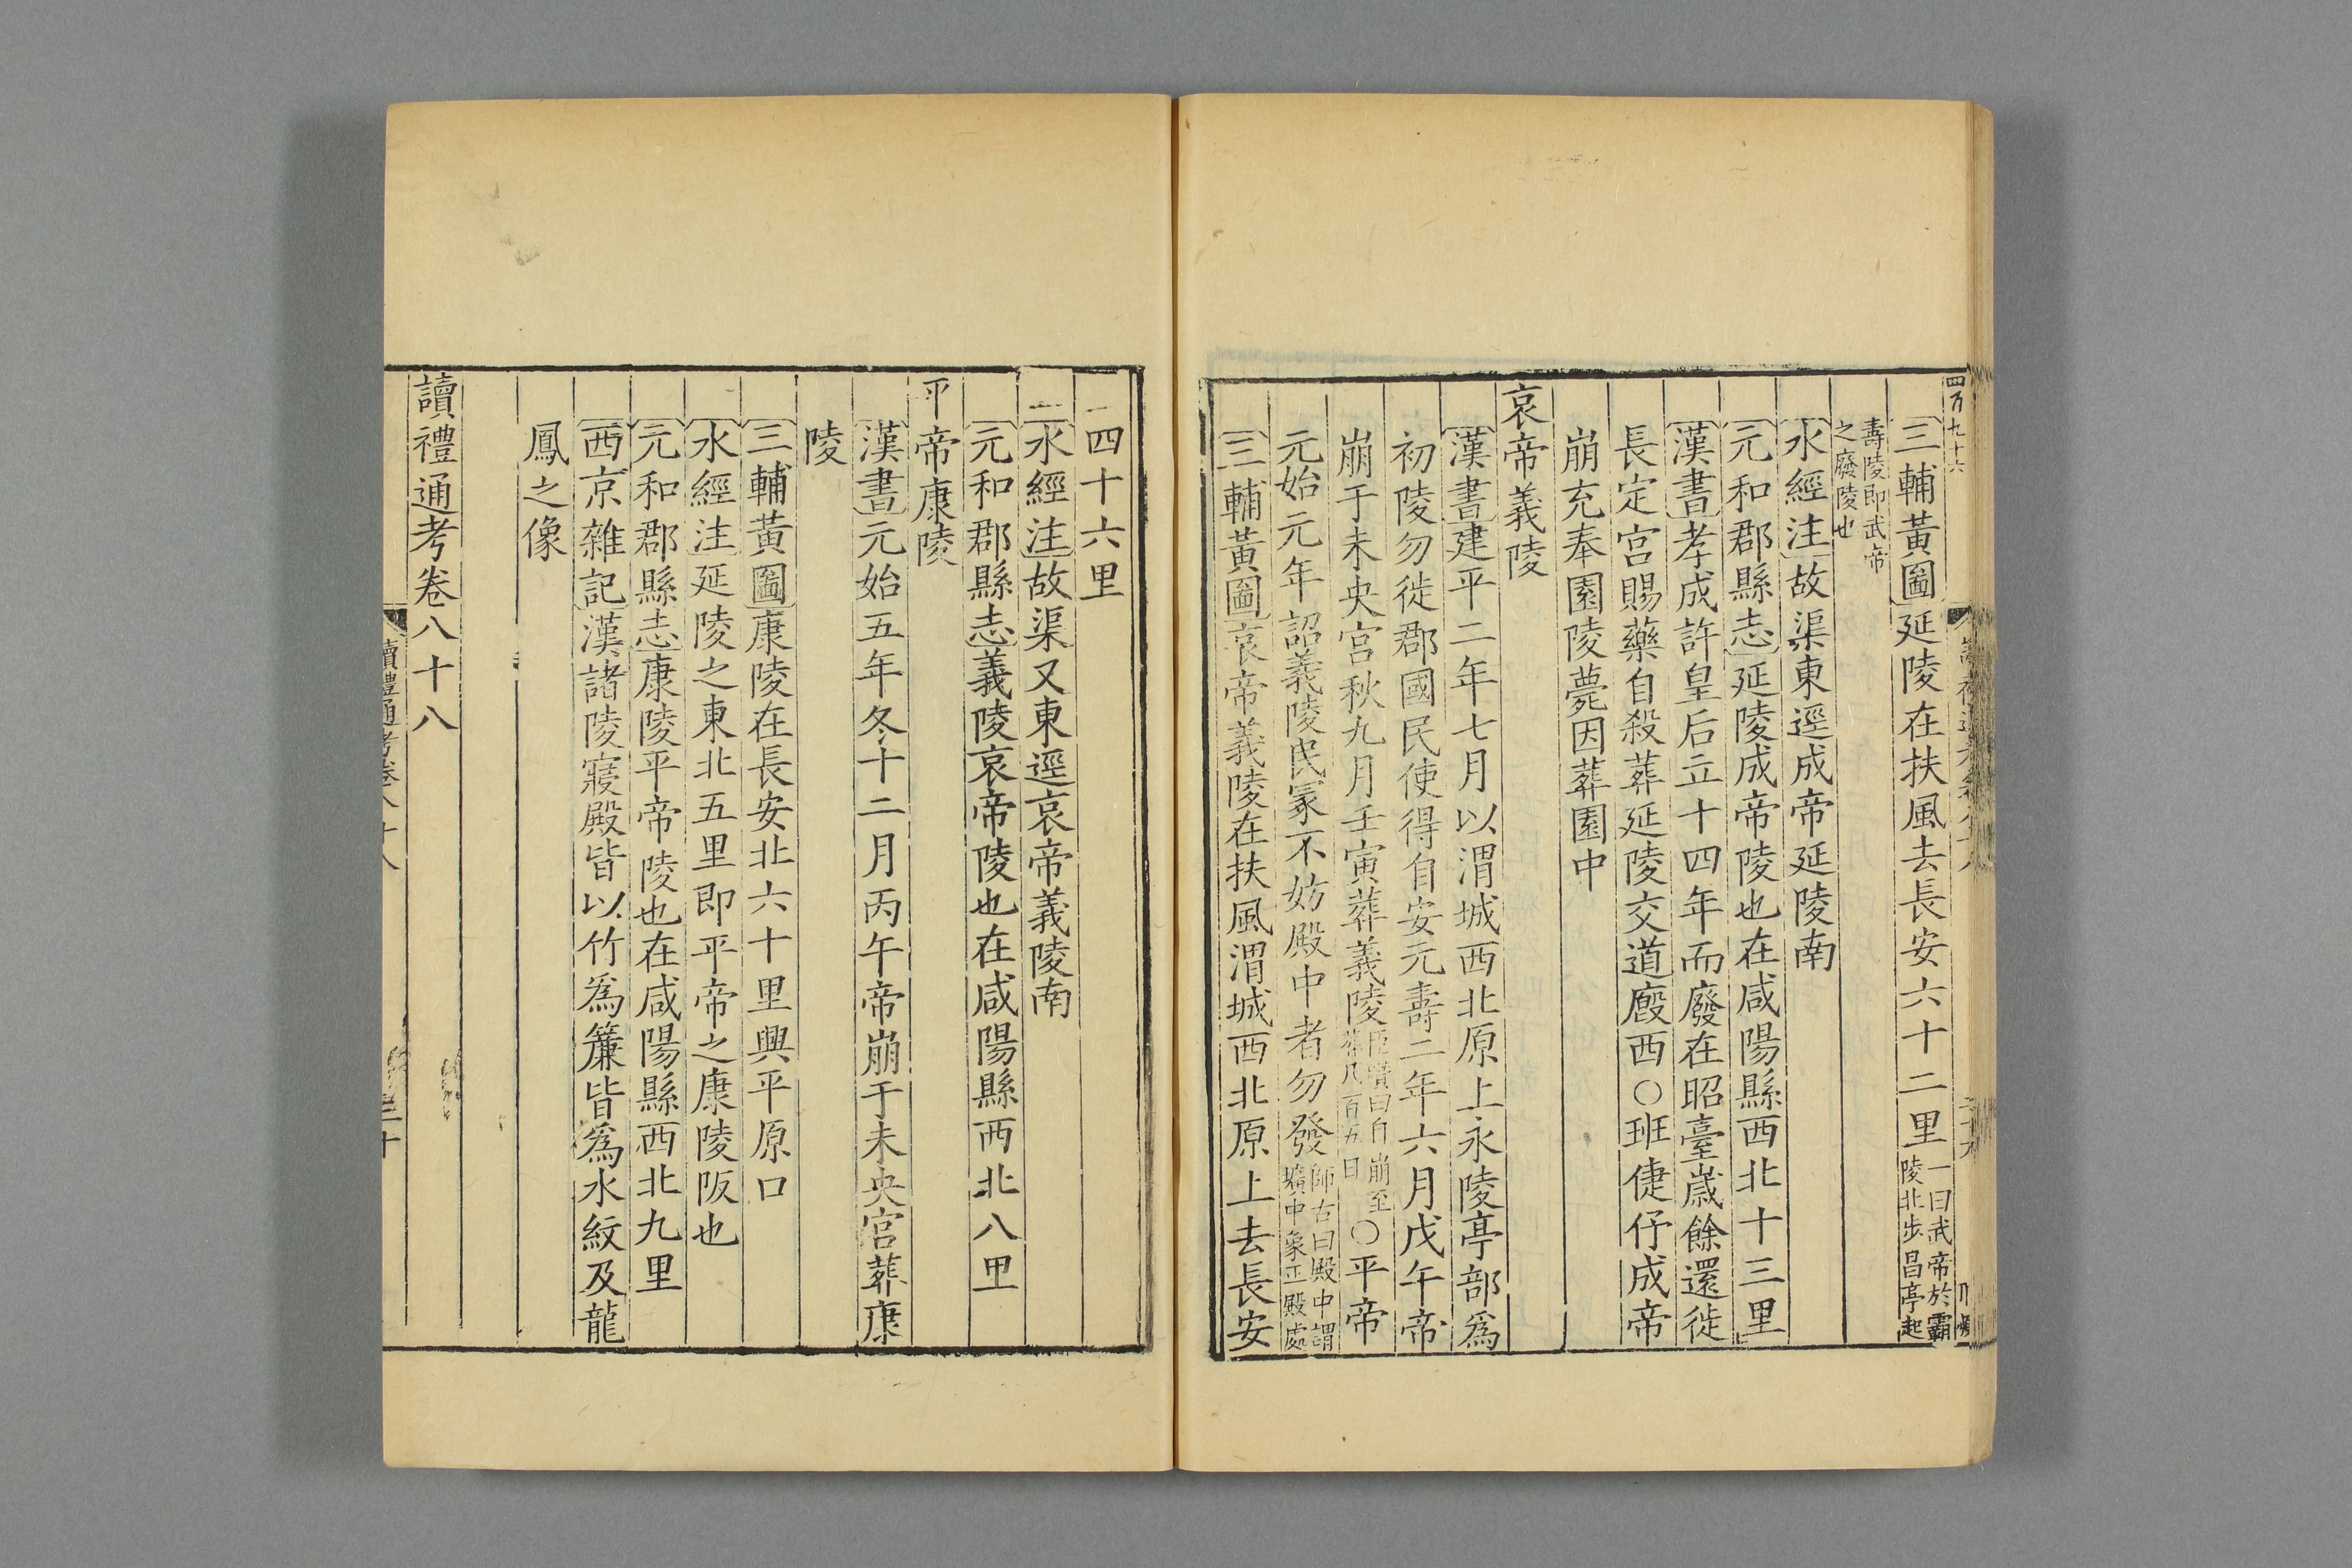 四百九十六
三輔黃圖延陵在扶風去長安六十二里一曰武帝於霸陵北步昌亭起
壽陵即武帝之廢陵也
水經注故渠東逕成帝延陵南
元和郡縣志延陵成帝陵也在咸陽縣西北十三里
漢書孝成許皇后立十四年而廢在昭臺歲餘還徙
長定宮賜藥自殺葬延陵交道廄西○班倢伃成帝
崩充奉園陵薨因葬園中
哀帝義陵
漢書建平二年七月以渭城西北原上永陵亭部爲
初陵勿徙郡國民使得自安元壽二年六月戊午帝
崩于未央宮秋九月壬寅葬義陵臣瓚曰自崩至葬凡百五日○平帝
元始元年詔義陵民冢不妨殿中者勿發師古曰殿中謂壙中象正殿處
三輔黃圖哀帝義陵在扶風渭城西北原上去長安
四十六里
水經注故渠又東逕哀帝義陵南
元和郡縣志義陵哀帝陵也在咸陽縣西北八里
平帝康陵
漢書元始五年冬十二月丙午帝崩于未央宮葬康
陵
三輔黃圖康陵在長安北六十里興平原口
水經注延陵之東北五里即平帝之康陵阪也
元和郡縣志康陵平帝陵也在咸陽縣西北九里
西京雜記漢諸陵寢殿皆以竹爲簾皆爲水紋及龍
鳳之像
讀禮通考卷八十八
讀禮通考卷八十八
三十